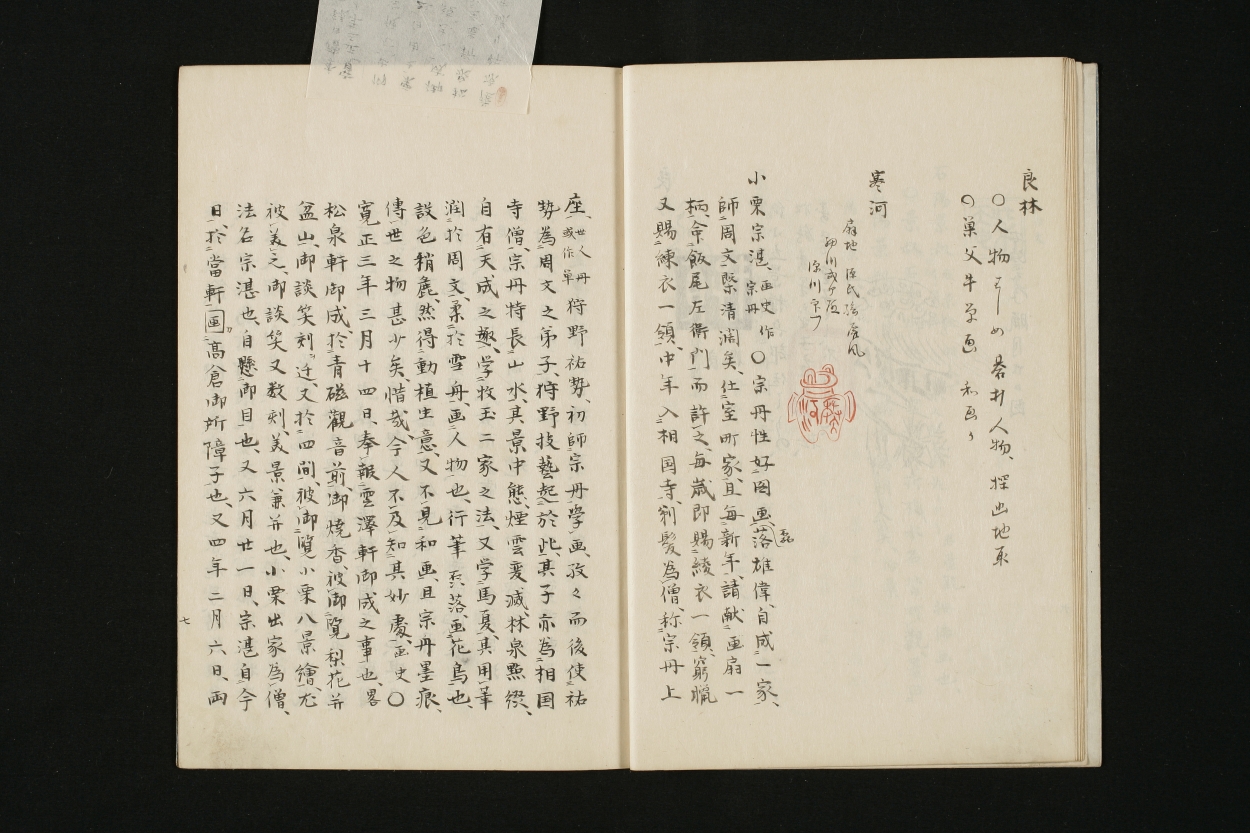 良林
〇人物
〇巣父牛 草画 和画
寒河
扇地 源氏絵屏風
細川
小栗宗湛、画史作宗丹 〇宗丹性好図画、落雄偉、自成一家、
磊
師周文緊清潤矣、仕室町家、且毎新年、請献画扇一
柄、命飯尾左衛門而許之、毎歳即賜綾衣一領、窮臘
又賜練衣一領、中年入相国寺、剃髪為僧、称宗丹上
座、世人丹或作單 狩野祐勢、初師宗丹学画、孜々而後使祐
勢為周文之弟子、狩野技藝起於此、其子亦為相国
寺僧、宗丹特長山水、其景中態、煙雲変滅、林泉點綴、
自有天成之趣、学牧玉二家之法、又学馬夏、其用筆
潤於周文、柔於雪舟、画人物也、行筆磊落、画花鳥也、
設色稍麁、然得動植生意、又不見和画、且宗丹墨痕、
傳世之物甚少矣、惜哉、今人不及知其妙處、画史〇
寛正三年三月十四日、奉報雲澤軒御成之事也、畧
松泉軒御成、於青磁觀音前、御焼香、被御覧梨花并
盆山、御談笑刻迁、又於四間、被御覧小栗八景繪、尤
被美之、御談笑又数刻、美景兼并也、小栗出家為僧、
法名宗湛也、自懸御目也、又六月廿一日、宗湛自今
日、於當軒画高倉御所障子也、又四年二月六日、両
七